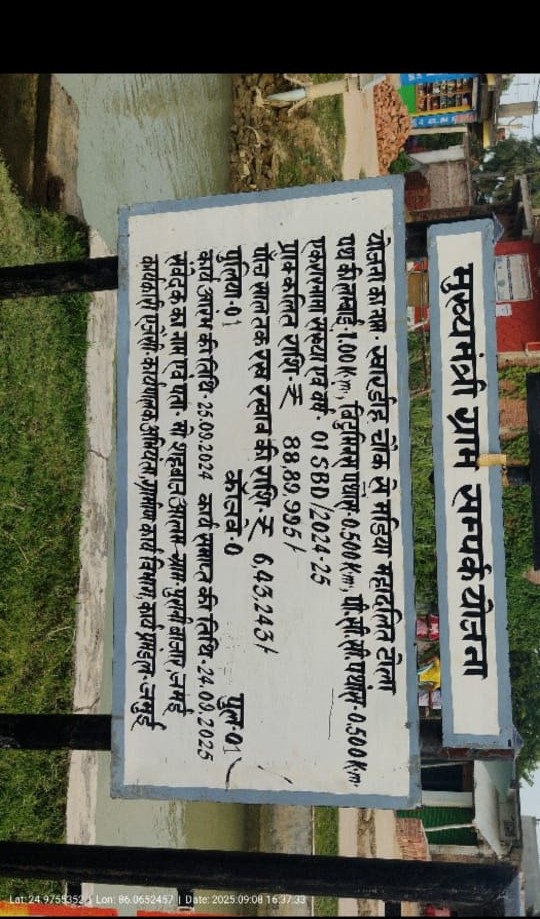 मुख्यमंत्री ग्राम सम्पर्क योजना
योजना का नाम - स्वारडीह चौक से मड़िया महादलित टोला
पथ की लम्बाई - 1.00 K.m, बिटुमिनस पथांस - 0.500 K.m, पी.सी.सी. पथांस - 0.500 K.m.
एकरारनामा संख्या एवं वर्ष - 01 SBD/2024-25
प्राक्कलित राशि - ₹ 88,89,995/-
पाँच साल तक रख रखाव की राशि - ₹ 6,43,243/-
पुलिया - 01 कॉलवे - 0 पुल - 01
कार्य आरंभ की तिथि - 25.09.2024 कार्य समापन की तिथि - 24.09.2025
संवेदक का नाम एवं पता - मो शहबाज आलम - ग्राम - पुरानी बाजार, जमुई
कार्यकारी एजेंसी - कार्यपालक अभियंता, ग्रामीण कार्य विभाग, कार्य प्रमंडल - जमुई
Lat: 24.9755352 | Lon: 86.0652457 | Date: 2025:09:08 16:37:33